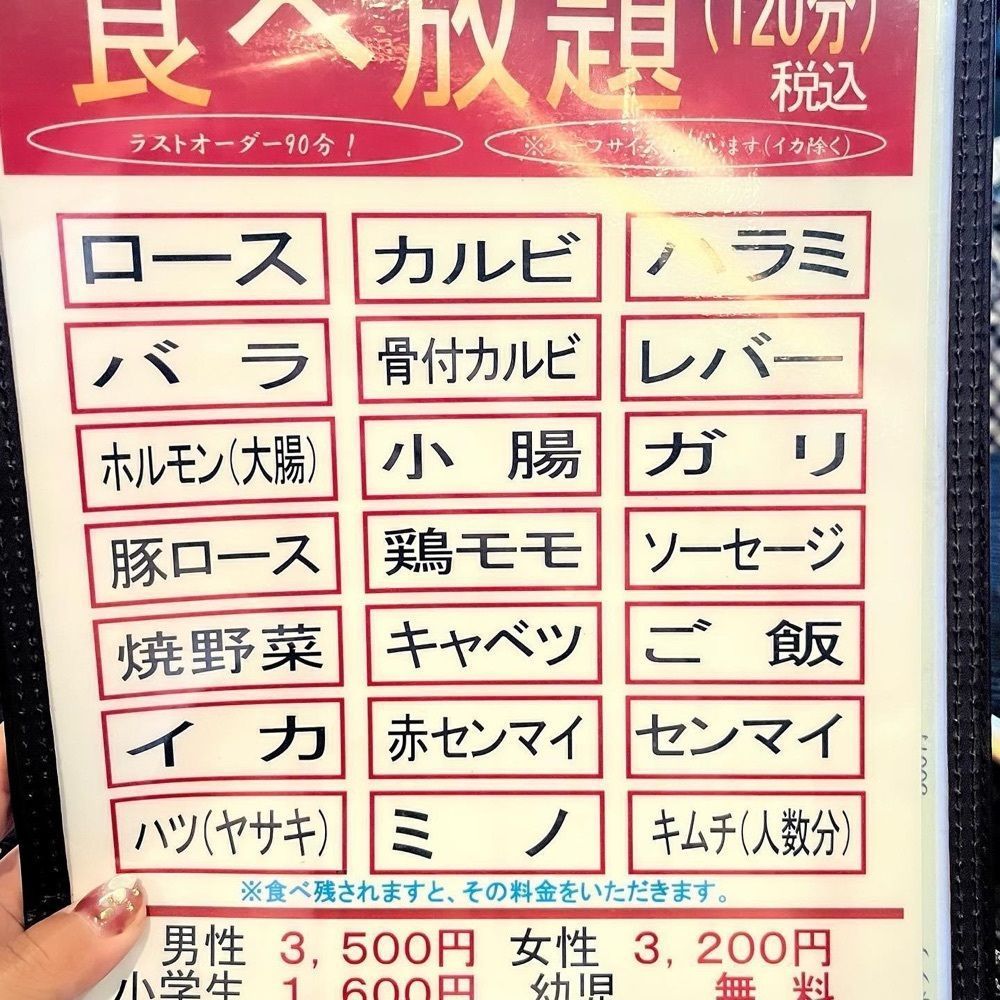 食べ放題 (120分)
税込
ラストオーダー90分!
※ハーフサイズ います(イカ除く)
ロース カルビ ハラミ
バラ 骨付カルビ レバー
ホルモン(大腸) 小腸 ガリ
豚ロース 鶏モモ ソーセージ
焼野菜 キャベツ ご飯
イカ 赤センマイ センマイ
ハツ(ヤサキ) ミノ キムチ(人数分)
※食べ残されますと、その料金をいただきます。
男性 3,500円 女性 3,200円
小学生 1,600円 幼児 無料